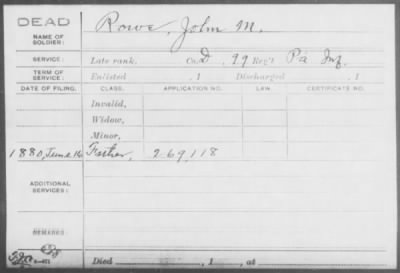 DEAD
NAME OF SOLDIER: Rowe, John M.
SERVICE: Late rank, Co. D, 99 Reg't Pa Inf.
TERM OF SERVICE: Enlisted , 1 Discharged , 1
DATE OF FILING. CLASS. APPLICATION NO. LAW. CERTIFICATE NO.
Invalid,
Widow,
Minor,
1880, June 16 Father, 269,118
ADDITIONAL SERVICES:
REMARKS:
Died , 1 , at